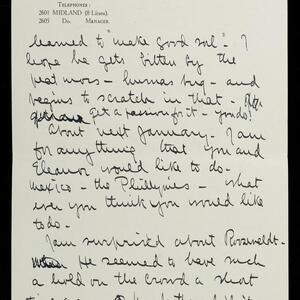 TELEPHONES:
2601 MIDLAND (8 Lines).
2605 Do. MANAGER.
learned to "make good soil" - I
hope he gets bitten by the
peat moss - humus bug - and
begins to scratch in that -
get a passion for it - you do!
About next January. I am
for anything that you and
Eleanor would like to do -
Mexico - the Phillipines - what
ever you think you would like
to do -
I am surprised about Roosevelt -
He seemed to have such
a hold on the crowd a short